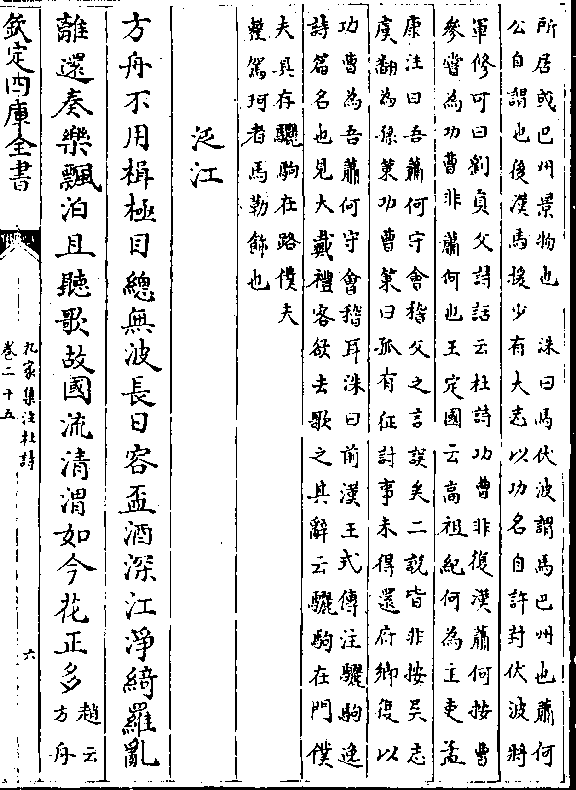 所居或巴州景物也　洙曰馬伏波謂馬巴州也蕭何
公自謂也後漢馬援少有大志以功名自許封伏波將
軍修可曰劉貢父詩話云杜詩功曹非復漢蕭何按曹
參嘗為功曹非蕭何也王定國云高祖紀何為主吏孟
康注曰吾蕭何守會稽父之言誤矣二說皆非按吳志
虞翻為孫策功曹策曰孤有征討事未得還府卿復以
功曹為吾蕭何守會稽耳洙曰前漢王式傳注驪駒逸
詩篇名也見大戴禮客欲去歌之其辭云驪駒在門僕
夫具存驪駒在路僕夫
整駕珂者馬勒飾也
泛江
方舟不用楫極目總無波長日容盃酒深江淨綺羅亂
離還奏樂飄泊且聽歌故國流清渭如今花正多
趙云
方舟
欽定四庫全書
九家集注杜詩
卷二十五
六